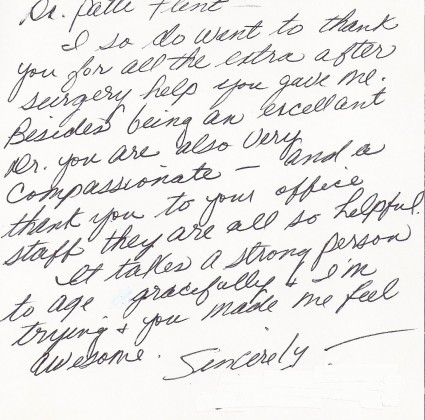 Dr. Patti Flint —
I so do want to thank
you for all the extra after
surgery help you gave me.
Besides being an excellant
Dr. you are also very
compassionate — and a
thank you to your office
staff they are all so helpful.
It takes a strong person
to age gracefully & I'm
trying & you made me feel
awesome. Sincerely —